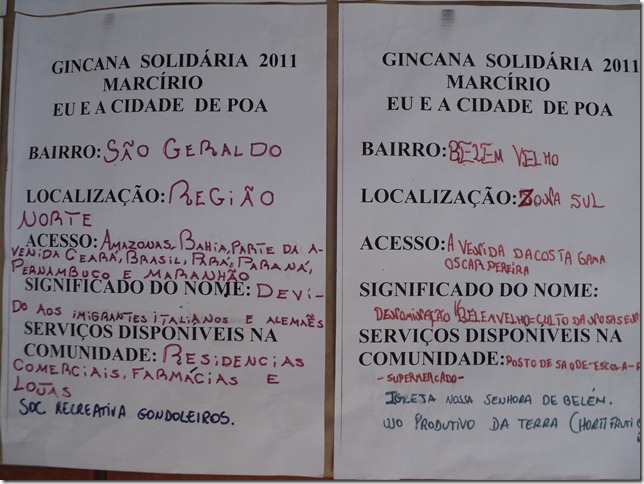 GINCANA SOLIDÁRIA 2011
MARCÍRIO
EU E A CIDADE DE POA
BAIRRO: SÃO GERALDO
LOCALIZAÇÃO: REGIÃO
NORTE
ACESSO: AMAZONAS, BAHIA, PARTE DA A-
VENIDA CEARÁ, BRASIL, PARÁ, PARANÁ,
PERNAMBUCO E MARANHÃO
SIGNIFICADO DO NOME: DEVI-
DO AOS IMIGRANTES ITALIANOS E ALEMÃES
SERVIÇOS DISPONÍVEIS NA
COMUNIDADE: RESIDENCIAS
COMERCIAIS, FARMÁCIAS E
LOJAS
SOC RECREATIVA GONDOLEIROS.
GINCANA SOLIDÁRIA 2011
MARCÍRIO
EU E A CIDADE DE POA
BAIRRO: BELÉM VELHO
LOCALIZAÇÃO: ZONA SUL
ACESSO: AVENIDA DA COSTA GAMA
OSCAR PEREIRA
SIGNIFICADO DO NOME:
DENOMINAÇÃO VELHO-CULTO DA
SERVIÇOS DISPONÍVEIS NA
COMUNIDADE: POSTO DE SAÚDE-ESCOLA-
-SUPERMERCADO-
IGREJA NOSSA SENHORA DE BELÉM.
USO PRODUTIVO DA TERRA (HORTIFRUTI